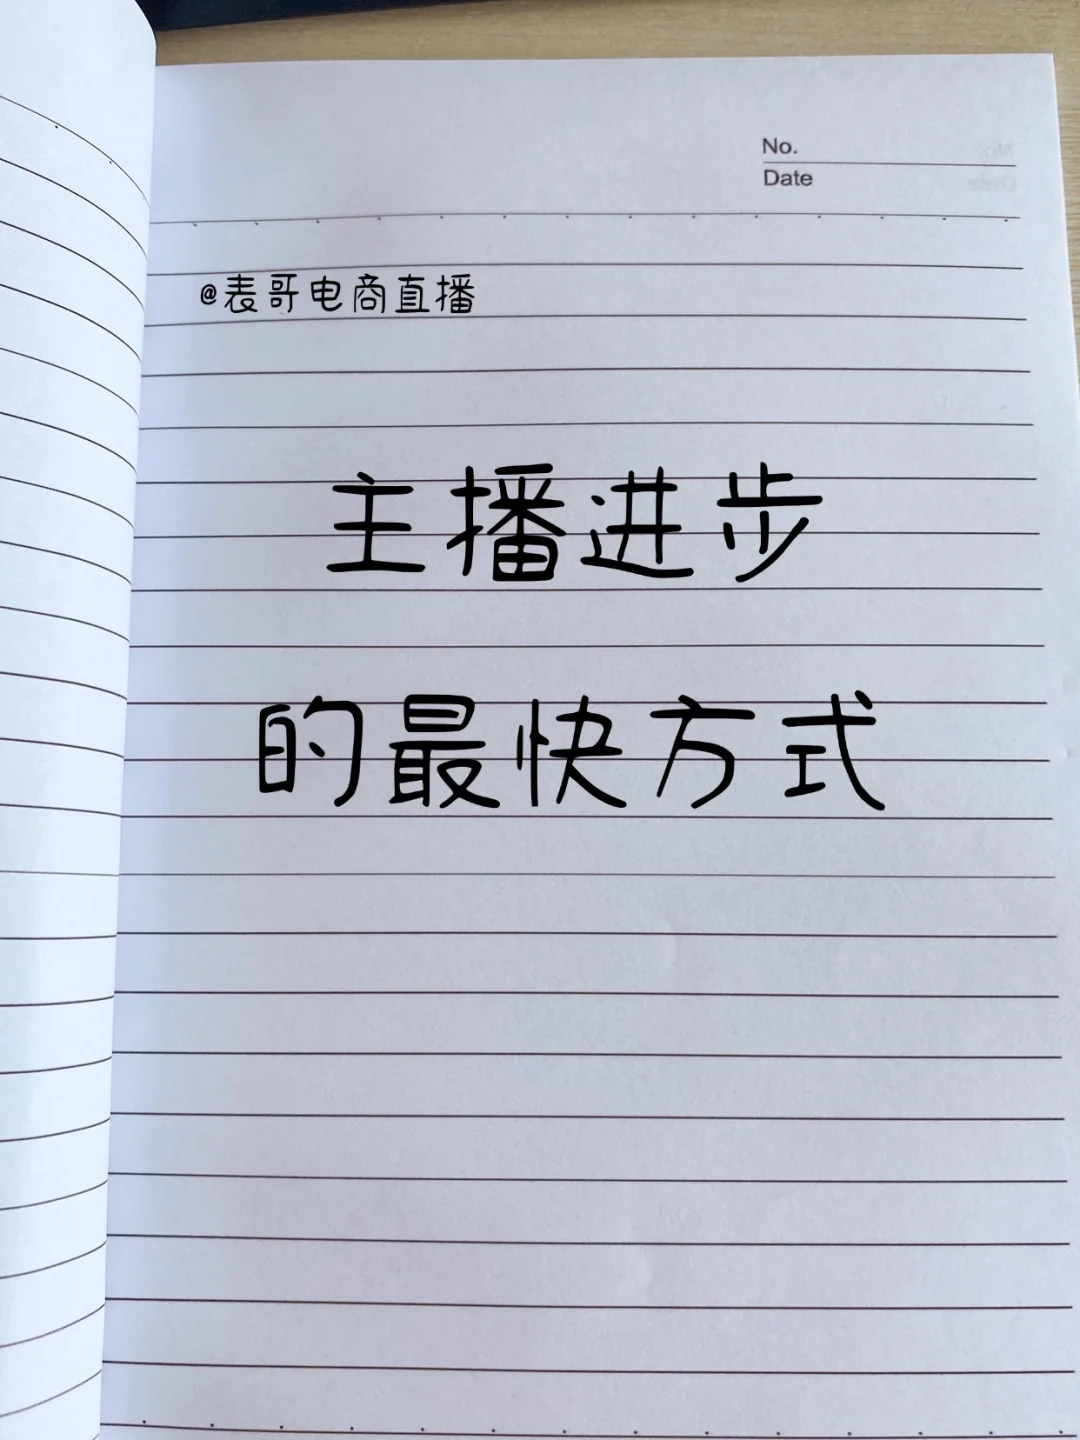 No.
Date
@表哥电商直播
主播进步
的最快方式